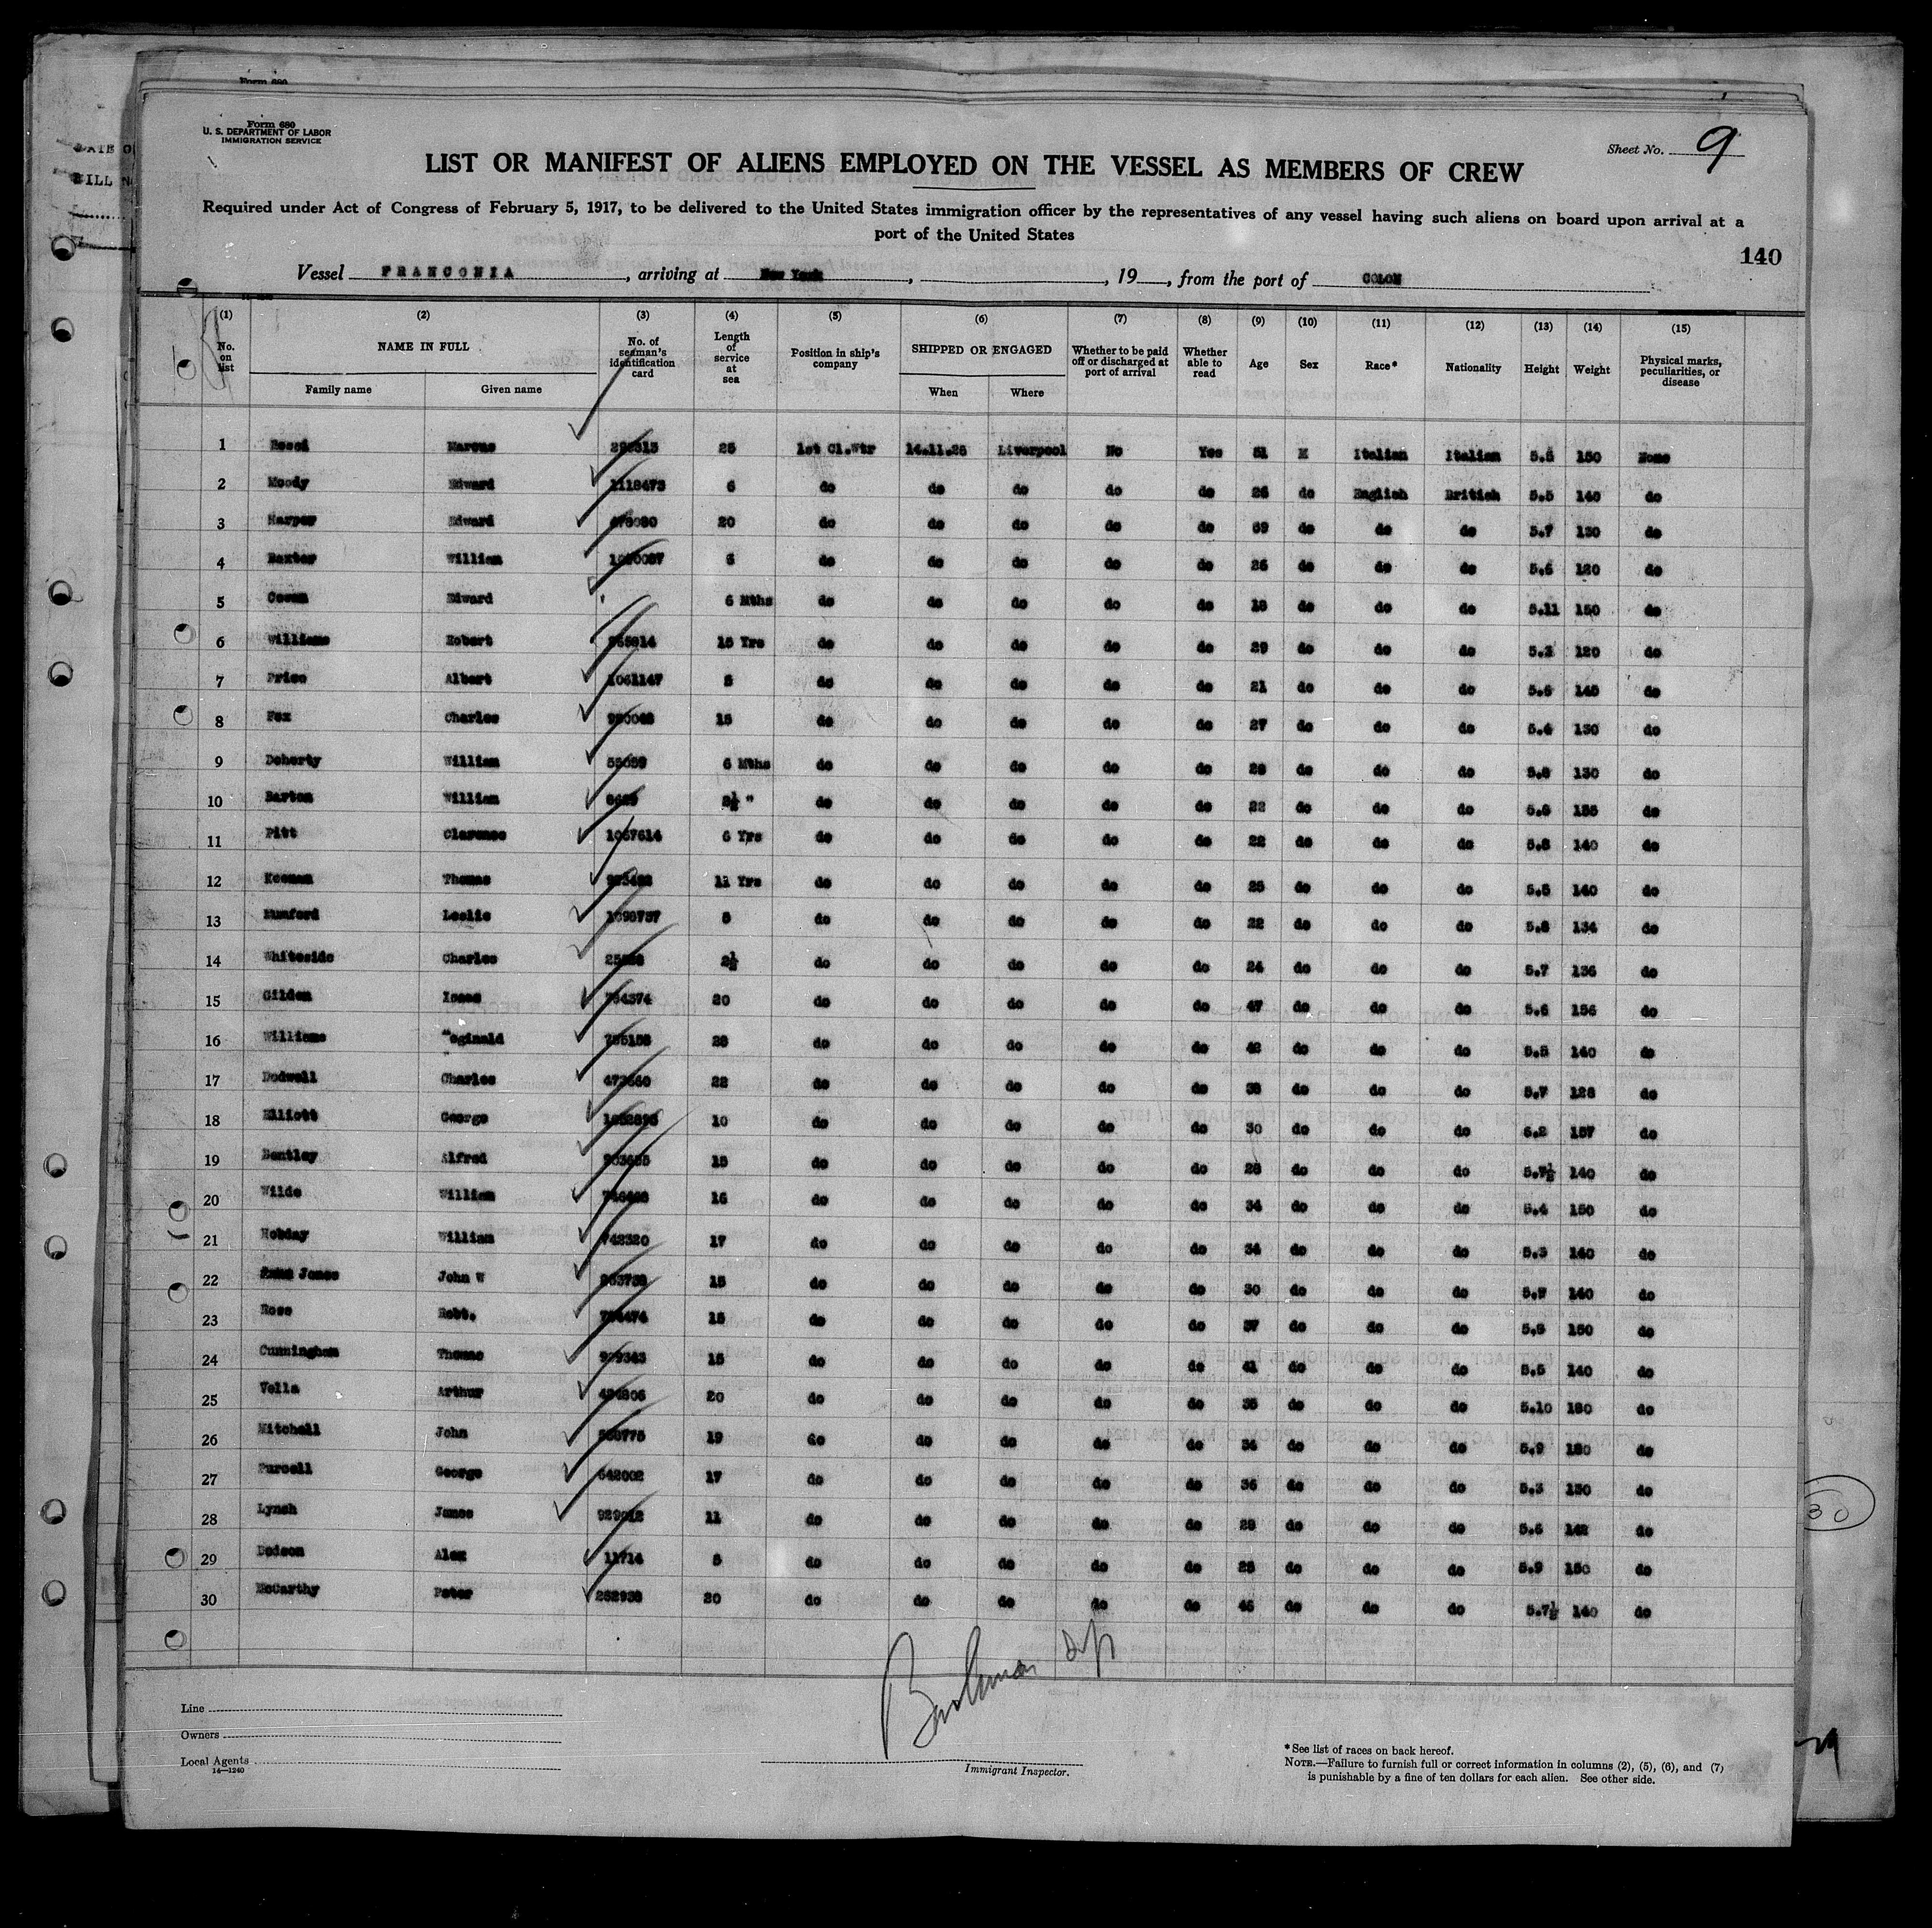 Form 680
U. S. DEPARTMENT OF LABOR
IMMIGRATION SERVICE
Sheet No. 9
LIST OR MANIFEST OF ALIENS EMPLOYED ON THE VESSEL AS MEMBERS OF CREW
Required under Act of Congress of February 5, 1917, to be delivered to the United States immigration officer by the representatives of any vessel having such aliens on board upon arrival at a
port of the United States
140
Vessel FRANCONIA, arriving at New York, , 19 , from the port of COLON
(1) (2) (3) (4) (5) (6) (7) (8) (9) (10) (11) (12) (13) (14) (15)
No. on list NAME IN FULL No. of seaman's identification card Length of service at sea Position in ship's company SHIPPED OR ENGAGED Whether to be paid off or discharged at port of arrival Whether able to read Age Sex Race* Nationality Height Weight Physical marks, peculiarities, or disease
Family name Given name When Where
1 Marcus 25 1st Cl.Wtr 14.11.25 Liverpool No Yes 51 M Italian Italian 5.5 150 None
2 Moody Edward 1118473 6 do do do do do 26 do English British 5.5 140 do
3 Harper Edward 20 do do do do do do do do 5.7 130 do
4 Baxter William do do do do do do do do 120 do
5 Edward 6 Mths do do do do do 18 do do do 5.11 150 do
6 Williams Robert 15 Yrs do do do do do 29 do do do 120 do
7 Price Albert 1061147 5 do do do do do 21 do do do do
8 Fox Charles 15 do do do do do 27 do do do 130 do
9 Doherty William 6 Mths do do do do do 28 do do do 130 do
10 Barton William do do do do do 22 do do do do
11 Pitt Clarence 1067614 6 Yrs do do do do do 22 do do do 5.8 140 do
12 Keenan Thomas 11 Yrs do do do do do 25 do do do 5.5 140 do
13 Mumford Leslie 1098737 5 do do do do do 22 do do do 5.8 134 do
14 Whiteside Charles 2½ do do do do do 24 do do do 5.7 136 do
15 Gilden Isaac 20 do do do do do 47 do do do 5.6 156 do
16 Williams Reginald 28 do do do do do 42 do do do 5.5 140 do
17 Dodwell Charles 22 do do do do do do do do 5.7 128 do
18 Elliott George 10 do do do do do 30 do do do 6.2 157 do
19 Bentley Alfred 15 do do do do do 28 do do do 5.7½ 140 do
20 Wilde William 16 do do do do do 34 do do do 5.4 150 do
21 Hobday William 742320 17 do do do do do 34 do do do 5.3 140 do
22 Jones John W 15 do do do do do 30 do do do 140 do
23 Rose Robt. 15 do do do do do 37 do do do 150 do
24 Cunningham Thomas 15 do do do do do 41 do do do 5.5 140 do
25 Vella Arthur 20 do do do do do 35 do do do 5.10 180 do
26 Mitchell John 19 do do do do do 34 do do do 5.9 180 do
27 Purcell George 642002 17 do do do do do 36 do do do 5.3 130 do
28 Lynch James 11 do do do do do 29 do do do 142 do
29 Dodson Alex 11714 5 do do do do do 25 do do do 5.9 150 do
30 McCarthy Peter 20 do do do do do 46 do do do 5.7½ 140 do
30
Line
Owners
Local Agents
14—1240
Immigrant Inspector.
*See list of races on back hereof.
NOTE.—Failure to furnish full or correct information in columns (2), (5), (6), and (7)
is punishable by a fine of ten dollars for each alien. See other side.